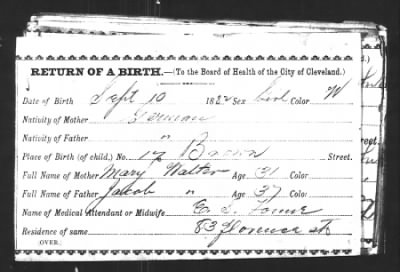 RETURN OF A BIRTH.—(To the Board of Health of the City of Cleveland.)
Date of Birth Sept 10 1882 Sex Girl Color W
Nativity of Mother German
Nativity of Father "
Place of Birth (of child.) No. 17 Brown Street.
Full Name of Mother Mary Walter Age 31 Color
Full Name of Father Jacob " Age 37 Color
Name of Medical Attendant or Midwife
Residence of same 83 Florence St
OVER.